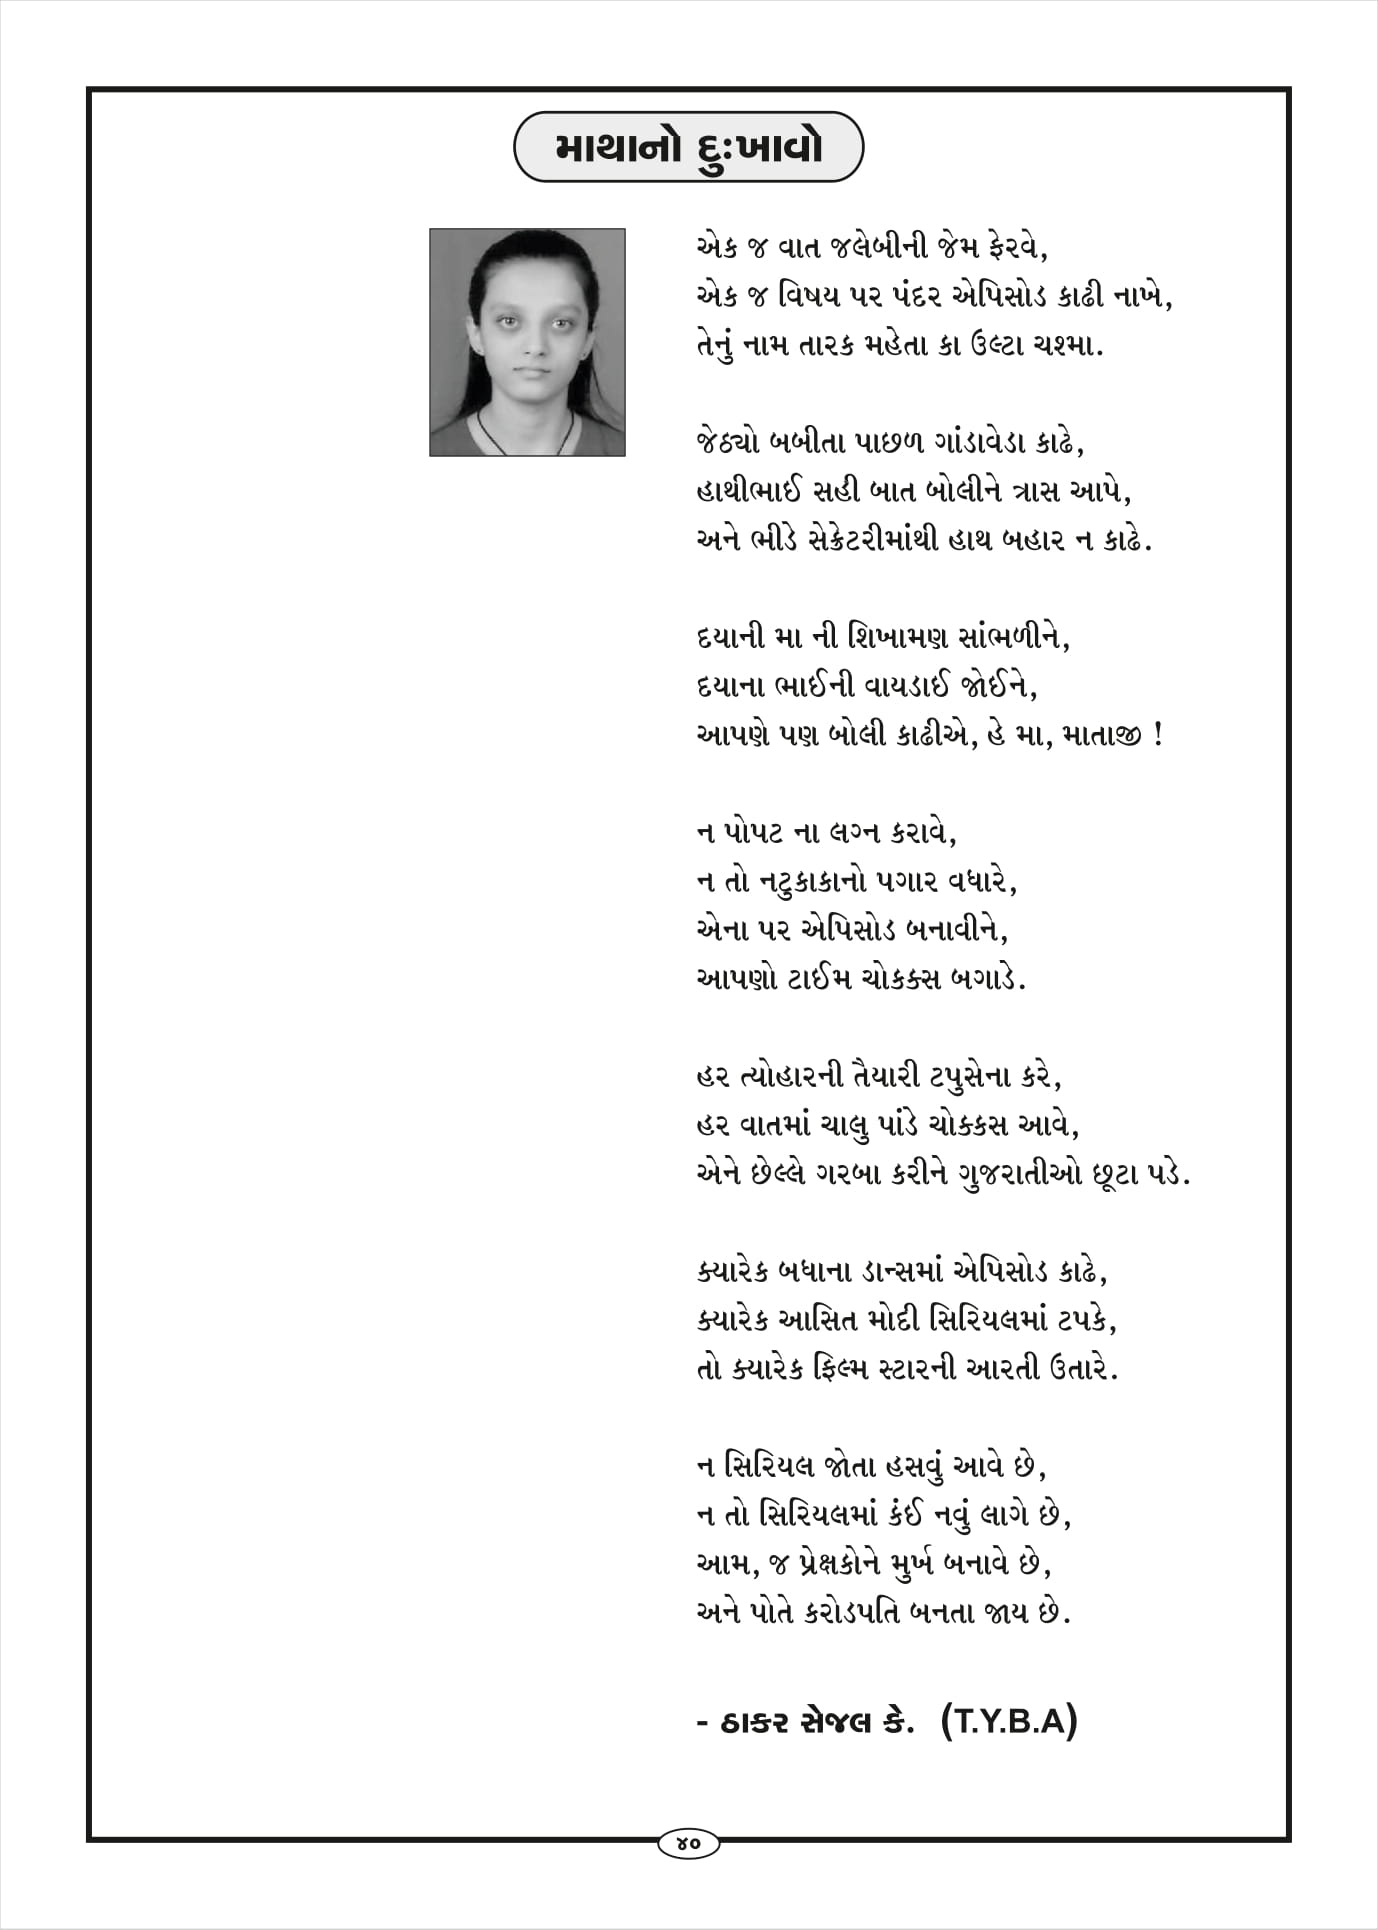 માથાનો દુઃખાવો
એક જ વાત જલેબીની જેમ ફેરવે,
એક જ વિષય પર પંદર એપિસોડ કાઢી નાખે,
તેનું નામ તારક મહેતા કા ઉલ્ટા ચશ્મા.
જેઠ્યો બબીતા પાછળ ગાંડાવેડા કાઢે,
હાથીભાઈ સહી બાત બોલીને ત્રાસ આપે,
અને ભીડે સેક્રેટરીમાંથી હાથ બહાર ન કાઢે.
દયાની મા ની શિખામણ સાંભળીને,
દયાના ભાઈની વાયડાઈ જોઈને,
આપણે પણ બોલી કાઢીએ, હે મા, માતાજી !
ન પોપટ ના લગ્ન કરાવે,
ન તો નટુકાકાનો પગાર વધારે,
એના પર એપિસોડ બનાવીને,
આપણો ટાઈમ ચોકક્સ બગાડે.
હર ત્યોહારની તૈયારી ટપુસેના કરે,
હર વાતમાં ચાલુ પાંડે ચોક્કસ આવે,
એને છેલ્લે ગરબા કરીને ગુજરાતીઓ છૂટા પડે.
ક્યારેક બધાના ડાન્સમાં એપિસોડ કાઢે,
ક્યારેક આસિત મોદી સિરિયલમાં ટપકે,
તો ક્યારેક ફિલ્મ સ્ટારની આરતી ઉતારે.
ન સિરિયલ જોતા હસવું આવે છે,
ન તો સિરિયલમાં કંઈ નવું લાગે છે,
આમ, જ પ્રેક્ષકોને મુર્ખ બનાવે છે,
અને પોતે કરોડપતિ બનતા જાય છે.
- ઠાકર સેજલ કે. (T.Y.B.A)
૪૦